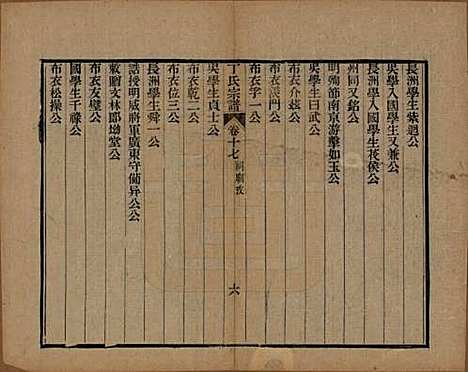 長洲學生紫迴公
吳學入國學生又蒹公
長洲學入國學生花侯公
州同又銘公
明殉節南京游擊如玉公
吳學生曰武公
布衣介繇公
布衣漢門公
布衣字一公
丁氏宗譜 卷十七 祠廟攷 六
吳學生貞士公
布衣乾二公
布衣位三公
長洲學生舜一公
誥授明威將軍廣東守備异公公
敕贈文林郎增堂公
布衣友璧公
國學生千祿公
布衣松操公